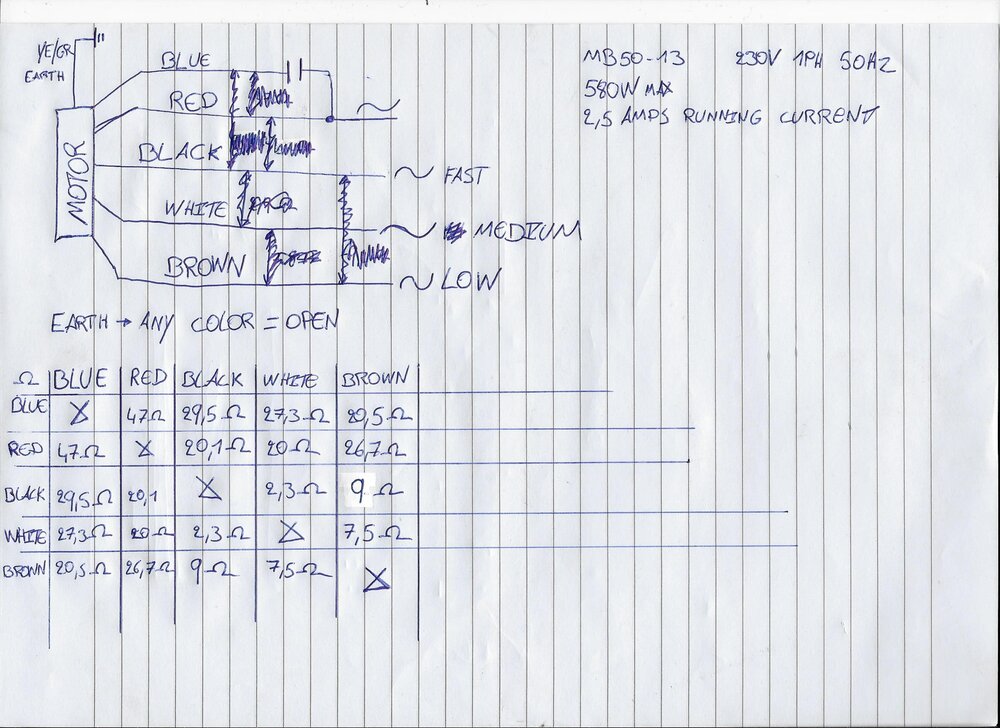 YE/GR
EARTH
BLUE
RED
BLACK
WHITE
BROWN
MOTOR
FAST
MEDIUM
LOW
MB50-13 230V 1PH 50HZ
580W MAX
2,5 AMPS RUNNING CURRENT
EARTH → ANY COLOR = OPEN
Ω BLUE RED BLACK WHITE BROWN
BLUE X 47Ω 29,5Ω 27,3Ω 20,5Ω
RED 47Ω X 20,1Ω 20Ω 26,7Ω
BLACK 29,5Ω 20,1 X 2,3Ω 9Ω
WHITE 27,3Ω 20Ω 2,3Ω X 7,5Ω
BROWN 20,5Ω 26,7Ω 9Ω 7,5Ω X